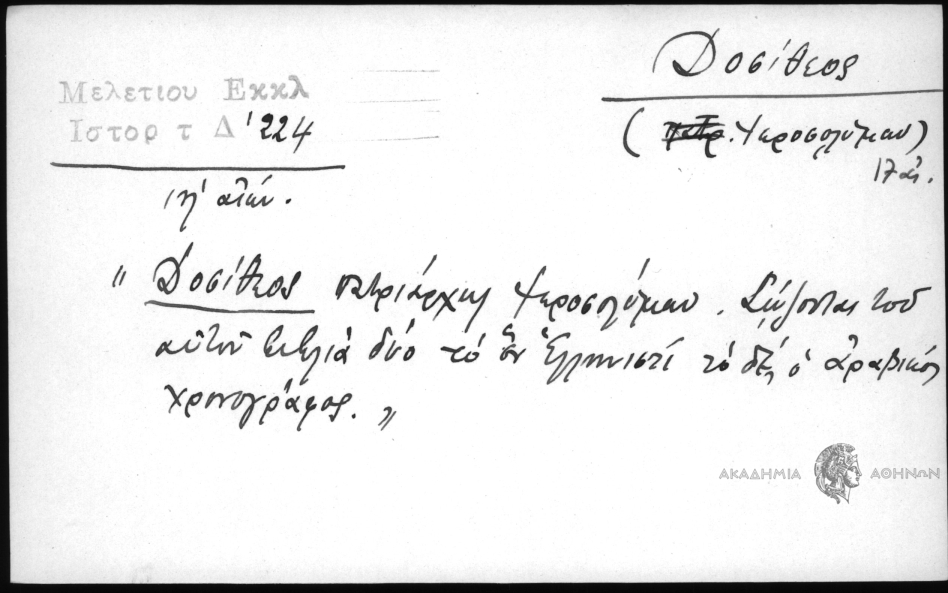 Δοσίθεος
Μελετιου Εκκλ
Ιστορ τ Δ' 224
(Ἱεροσολύμων)
17 αἰ.
ιη' αἰών.
" Δοσίθεος πατριάρχης Ἱεροσολύμων. Σώζονται τοῦ
αὐτοῦ βιβλία δύο τὸ ἓν Ἑλληνιστί τὸ δὲ, ὁ ἀραβικός
χρονογράφος. "
ΑΚΑΔΗΜΙΑ ΑΘΗΝΩΝ